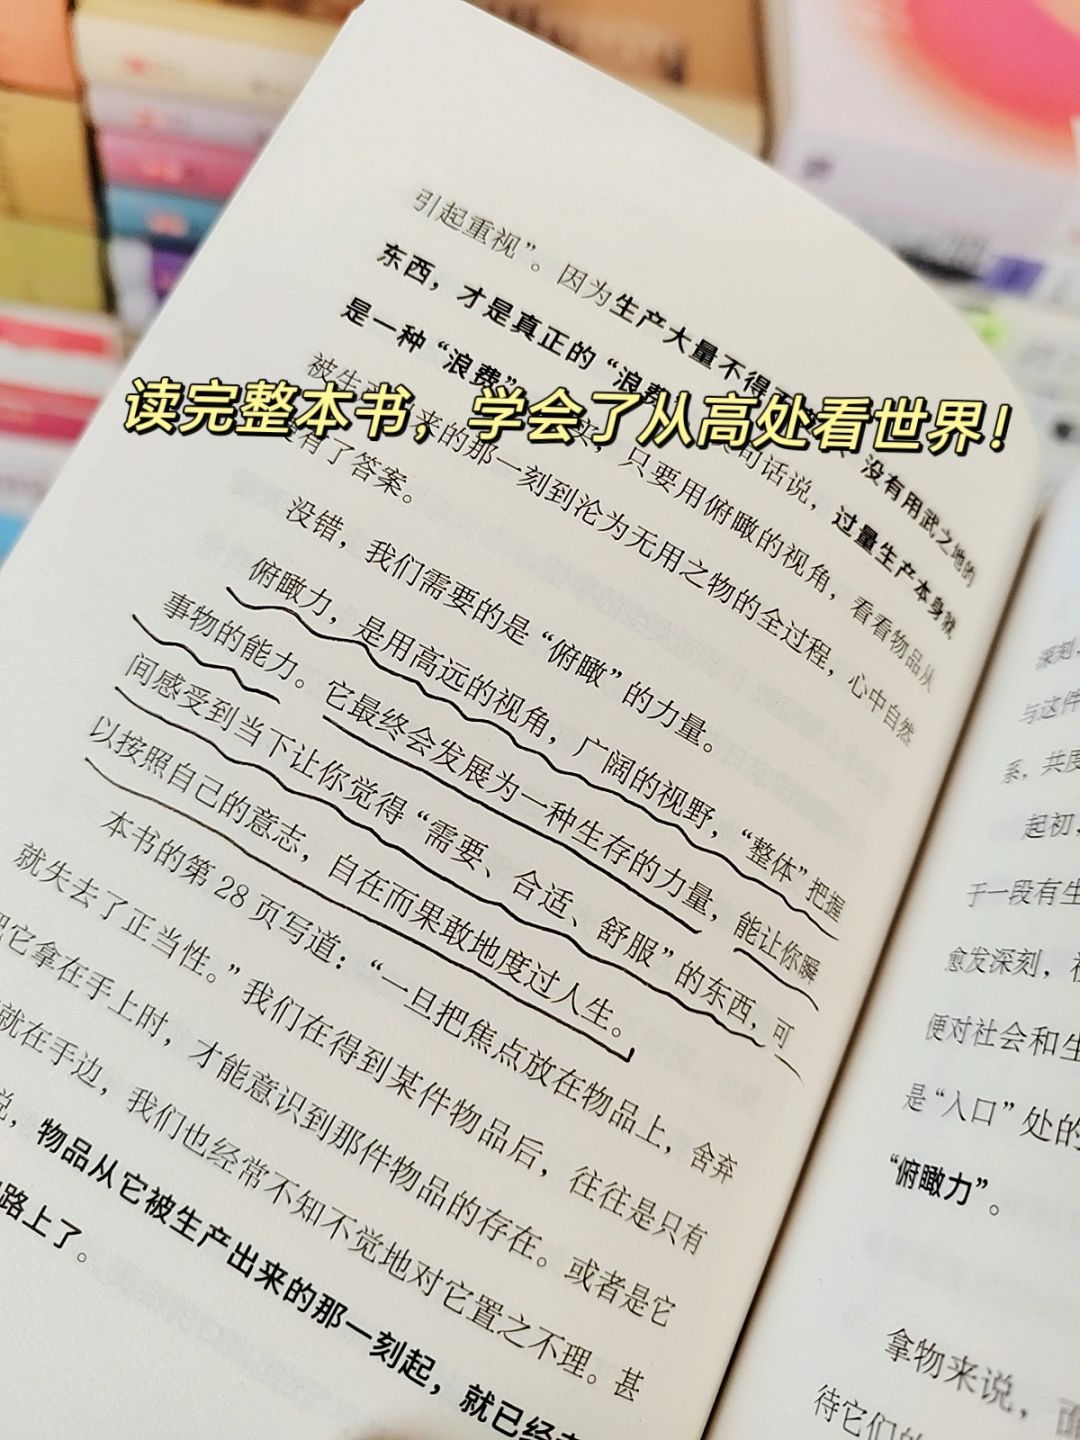 引起重视”。因为生产大量不得
东西，才是真正的“浪费 没有用武之地的
是一种“浪费” 句话说，过量生产本身就
读完整本书，学会了从高处看世界！
被生 来的那一刻到沦为无用之物的全过程，心中自然
只要用俯瞰的视角，看看物品从
有了答案。
没错，我们需要的是“俯瞰”的力量。
俯瞰力，是用高远的视角，广阔的视野，“整体”把握
事物的能力。它最终会发展为一种生存的力量，能让你瞬
间感受到当下让你觉得“需要、合适、舒服”的东西，可
以按照自己的意志，自在而果敢地度过人生。
本书的第28页写道：“一旦把焦点放在物品上，舍弃
就失去了正当性。”我们在得到某件物品后，往往是只有
把它拿在手上时，才能意识到那件物品的存在。或者是它
就在手边，我们也经常不知不觉地对它置之不理。甚
说，物品从它被生产出来的那一刻起，就已经
路上了。
深刻，
与这件
系，共度
起初，
于一段有生
愈发深刻，
便对社会和生
是“入口”处的
“俯瞰力”。
拿物来说，
待它们的